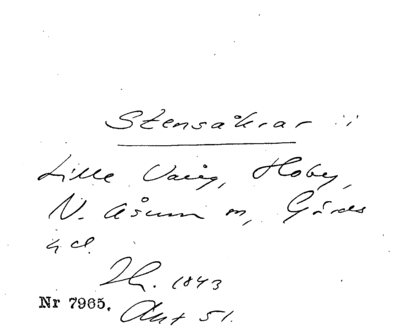 Stensåkrar i
Lille Vang, Hoby,
N. Åsum m, Gärds
hd.
Th. 1843
Nr 7965.
Akt 51.